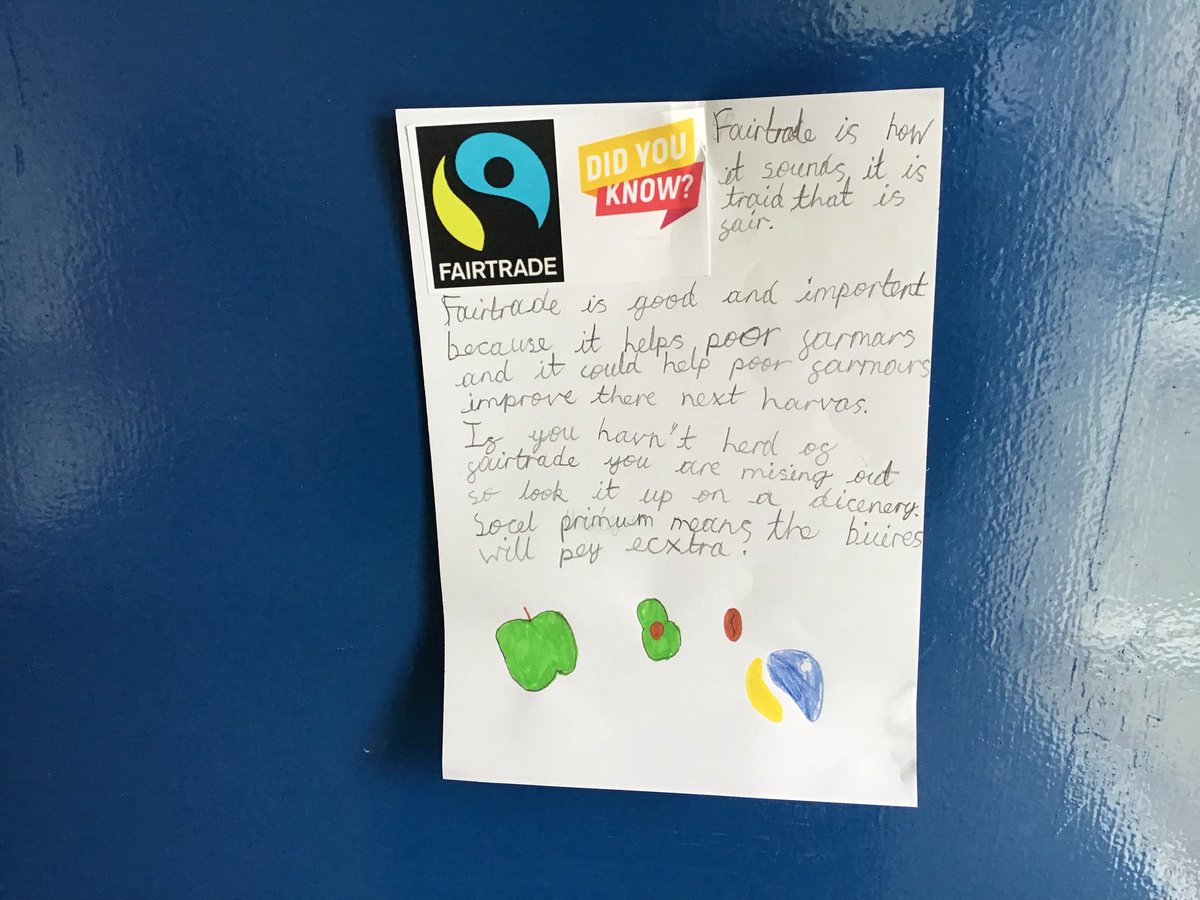 FAIRTRADE
DID YOU
KNOW?
Fairtrade is how
it sounds, it is
traid that is
fair.
Fairtrade is good and importent
because it helps poor farmars
and it could help poor farmours
improve there next harvas.
If you havn't herd of
fairtrade you are mising out
so look it up on a dicenery.
Socel primum means the biuires
will pey ecxtra.